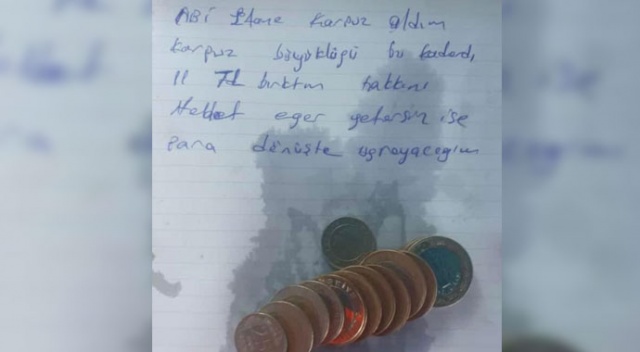 ABİ 1 tane karpuz aldım
karpuz büyüklüğü bu kadardı,
11 TL bıraktım hakkını
Helal et eger yetersiz ise
para dönüşte ugrayacağım